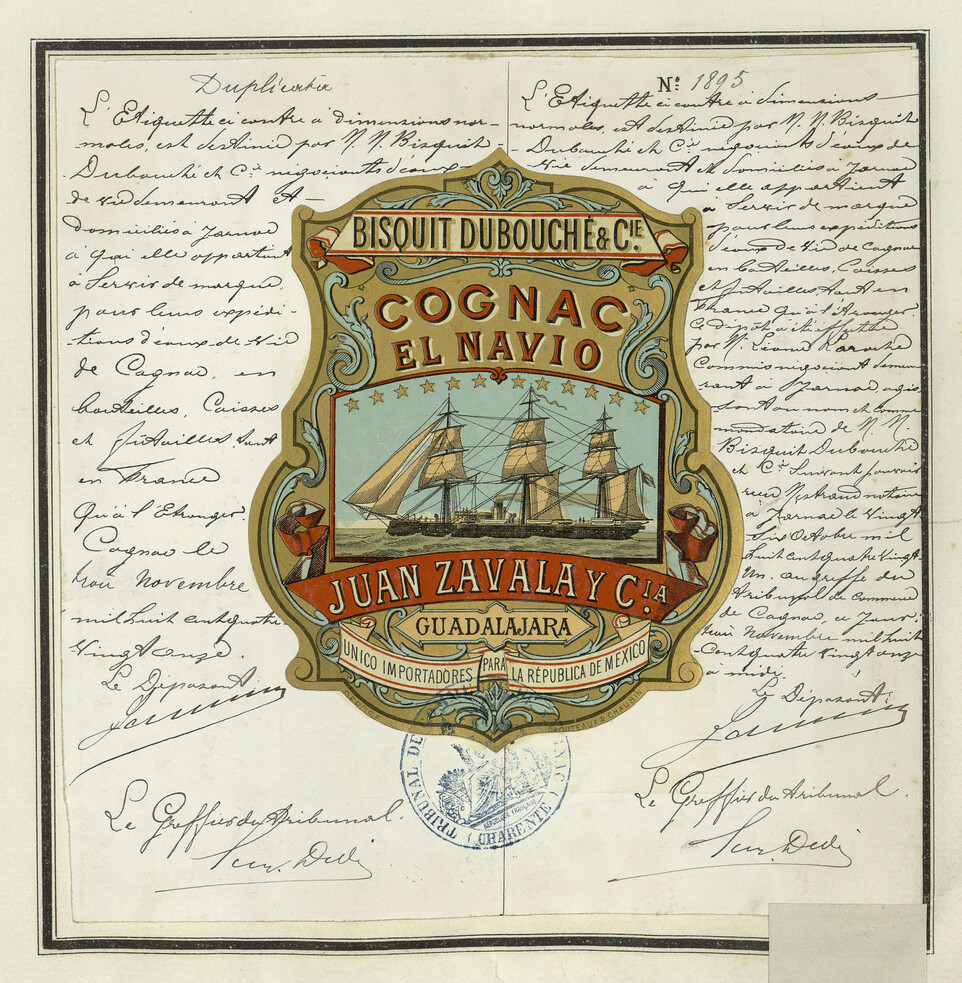 Duplicata
L'Etiquette ci contre à dimensions nor-
males, est destinée par M. M. Bisquit
Dubouché et Cie négociants d'eaux
de vie demeurant et
domiciliés à Jarnac
à qui elle appartient
à Servir de marque
pour leurs expédi-
tions d'eaux de Vie
de Cognac, en
bouteilles, Caisses
et futailles, tant
en France
qu'à l'Etranger.
Cognac le
trois Novembre
mil huit cent quatre
Vingt onze.
Le Déposant
Le Greffier du Tribunal.
No. 1895
L'Etiquette ci contre à dimensions
normales, est destinée par M. M. Bisquit
Dubouché et Cie négociants d'eaux de
Vie demeurant et domiciliés à Jarnac
à qui elle appartient
à Servir de marque
pour leurs expéditions
d'eaux de Vie de Cognac
en bouteilles, Caisses
et futailles, tant en
France qu'à l'Etranger.
Ce dépôt a été effectué
par M. Léonce Laroche
Commis négociant demeu
rant à Jarnac agis
sant au nom et comme
mandataire de M. M.
Bisquit Dubouché
et Cie Suivant pouvoir
reçu notaire
à Jarnac le Vingt
Six Octobre mil
huit cent quatre Vingt
onze au greffe du
Tribunal de Commerce
de Cognac, ce jour
trois Novembre mil huit
Cent quatre Vingt onze
à midi.
Le Déposant.
Le Greffier du Tribunal.
BISQUIT DUBOUCHÉ & CIE.
COGNAC
EL NAVIO
JUAN ZAVALA Y CIA.
GUADALAJARA
UNICO IMPORTADORES PARA LA RÉPUBLICA DE MEXICO
DÉPOSÉ
DROUTEAUX & CHAUDIN
TRIBUNAL DE
(CHARENTE)